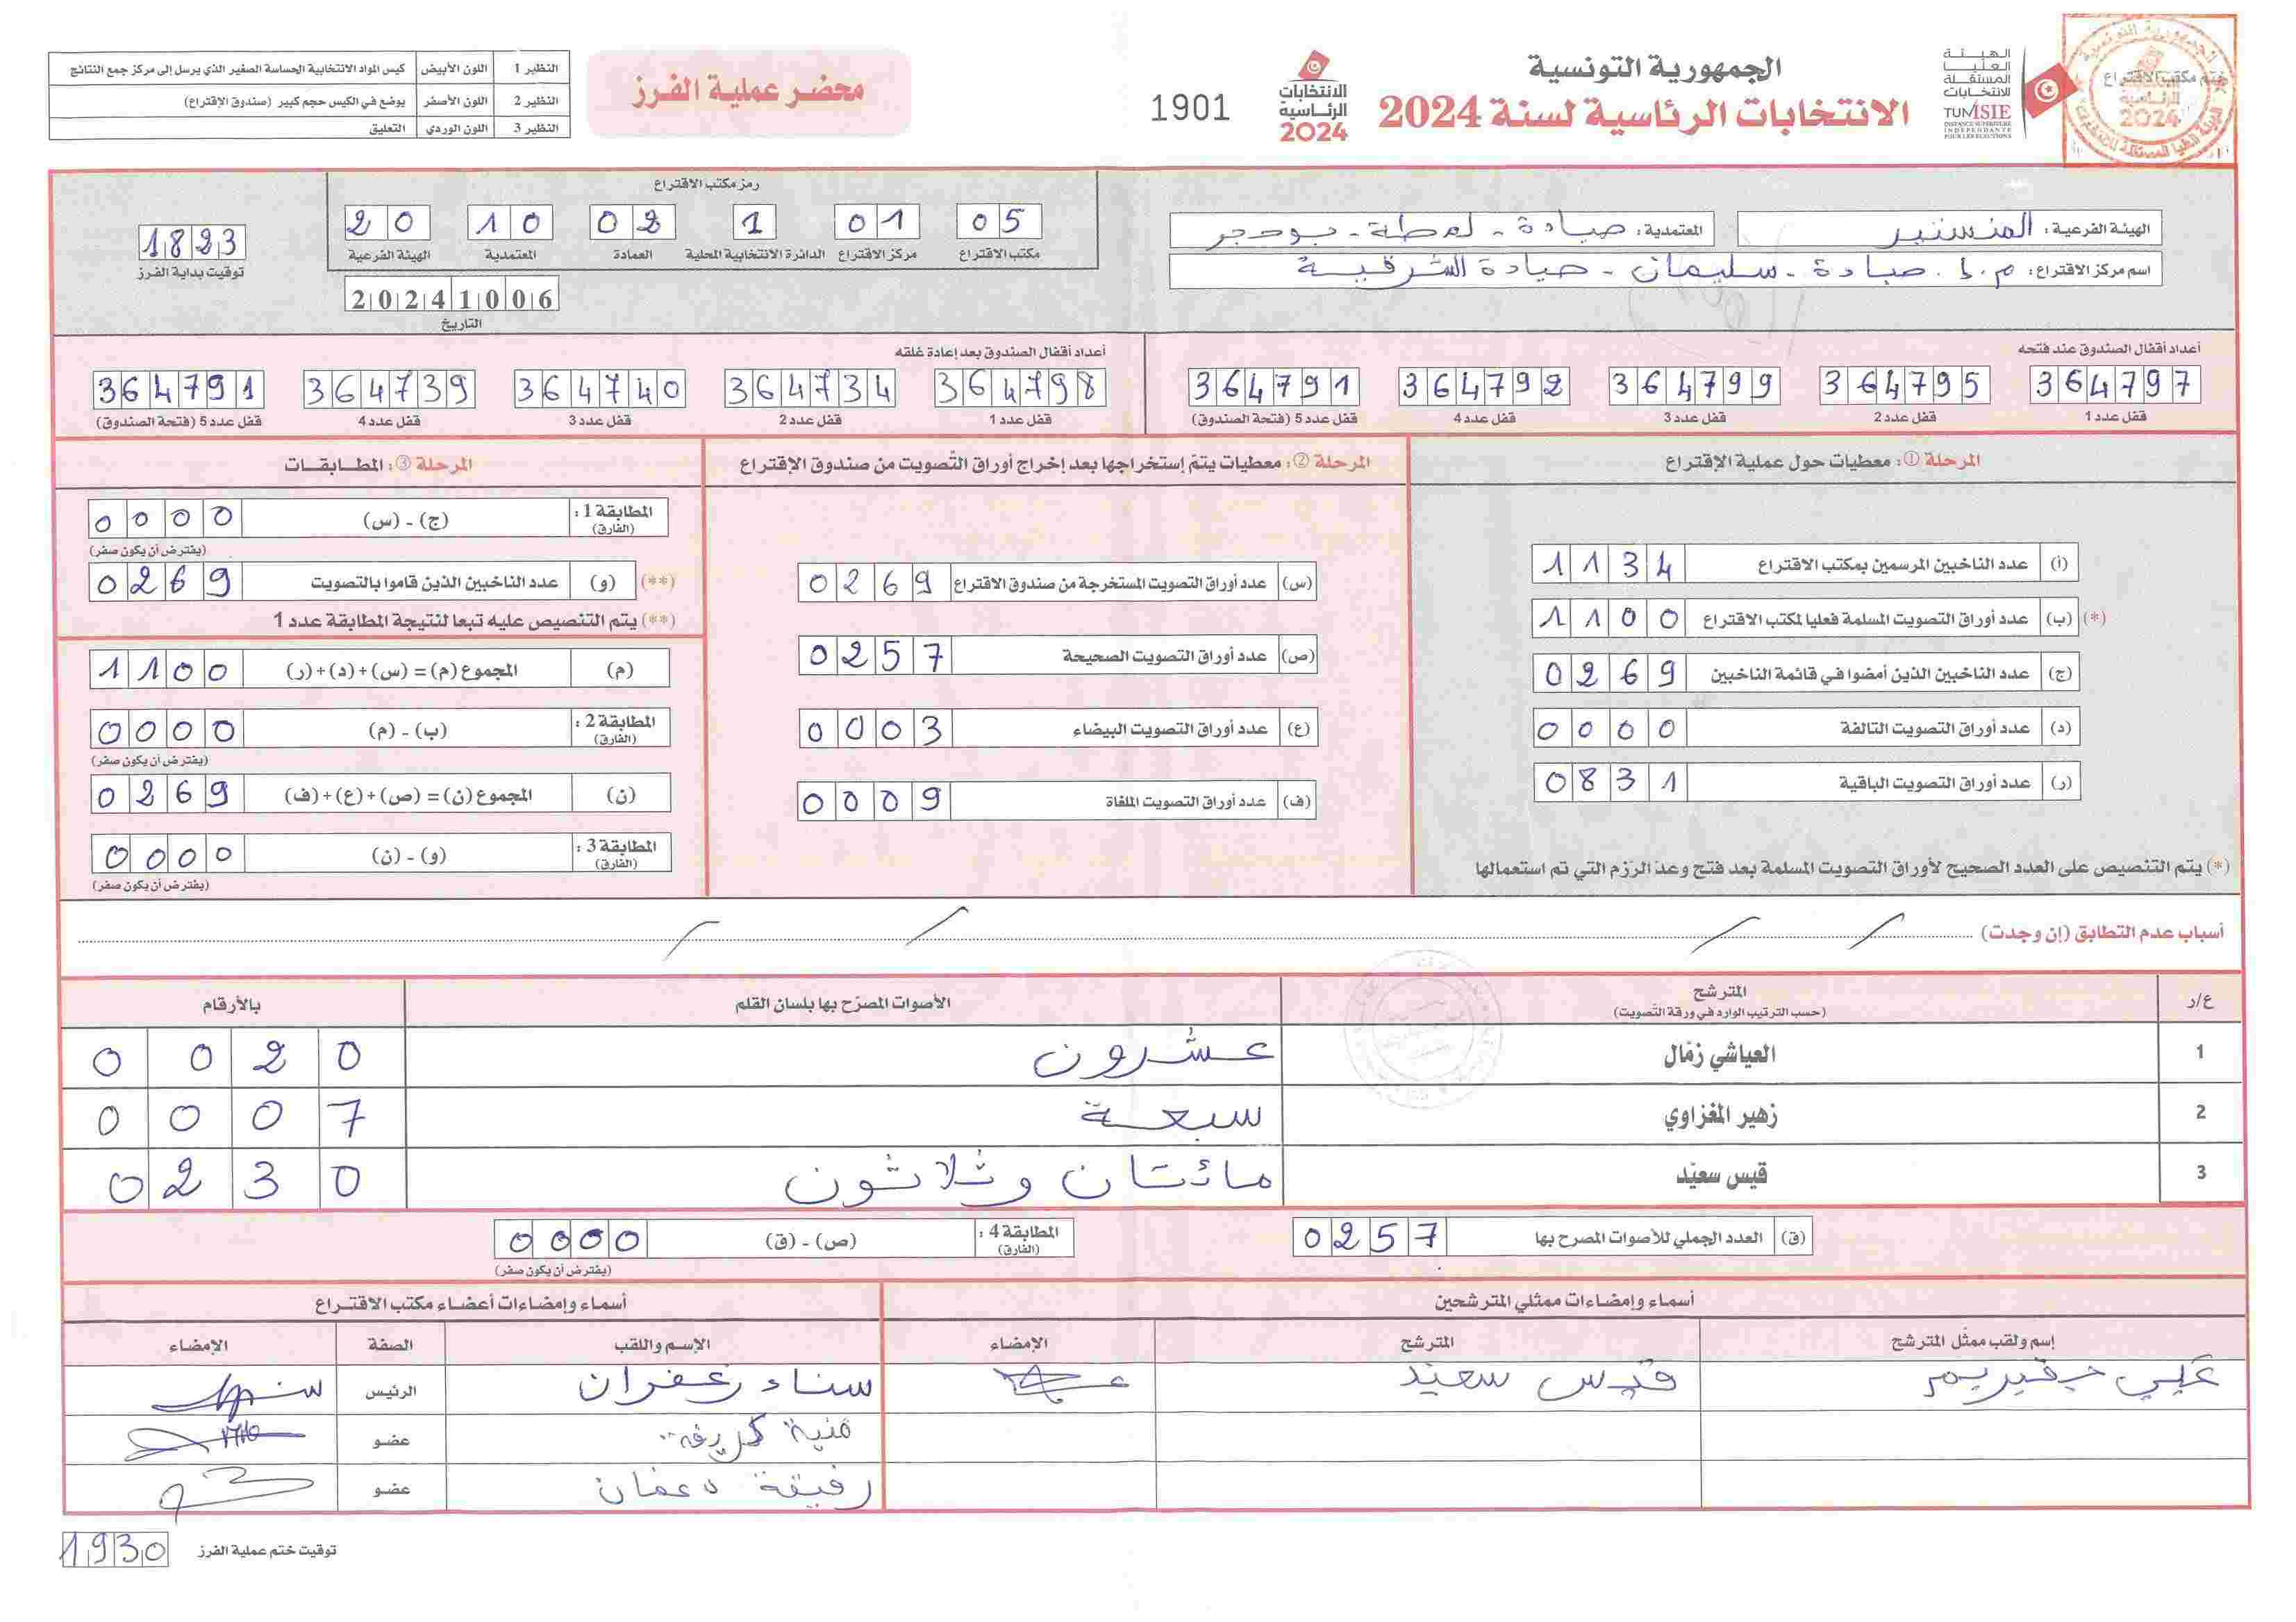 الهيئة
العليا
المستقلة
للانتخابات
TUNISIE
INSTANCE SUPERIEURE
INDEPENDANTE
POUR LES ELECTIONS
ختم مكتب الاقتراع
الجمهورية التونسية
الانتخابات الرئاسية لسنة 2024
الانتخابات
الرئاسية
2024
1901
محضر عملية الفرز
النظير 1 اللون الأبيض كيس المواد الانتخابية الحساسة الصغير الذي يرسل إلى مركز جمع النتائج
النظير 2 اللون الأصفر يوضع في الكيس حجم كبير (صندوق الإقتراع)
النظير 3 اللون الوردي التعليق
الهيئة الفرعية: المنستير
المعتمدية: صيادة - لمطة - بوحجر
اسم مركز الاقتراع: م.إ. صيادة - سليمان - صيادة الشرقية
رمز مكتب الاقتراع
05 01 1 02 10 20
مكتب الاقتراع مركز الاقتراع الدائرة الانتخابية المحلية العمادة المعتمدية الهيئة الفرعية
1823
توقيت بداية الفرز
20241006
التاريخ
أعداد أقفال الصندوق عند فتحه
364797 364795 364799 364792 364791
قفل عدد 1 قفل عدد 2 قفل عدد 3 قفل عدد 4 قفل عدد 5 (فتحة الصندوق)
أعداد أقفال الصندوق بعد إعادة غلقه
364798 364734 364740 364739 364791
قفل عدد 1 قفل عدد 2 قفل عدد 3 قفل عدد 4 قفل عدد 5 (فتحة الصندوق)
المرحلة ①: معطيات حول عملية الإقتراع
(أ) عدد الناخبين المرسمين بمكتب الاقتراع 1134
(*) (ب) عدد أوراق التصويت المسلمة فعليا لمكتب الاقتراع 1100
(ج) عدد الناخبين الذين أمضوا في قائمة الناخبين 0269
(د) عدد أوراق التصويت التالفة 0000
(ر) عدد أوراق التصويت الباقية 0831
(*) يتم التنصيص على العدد الصحيح لأوراق التصويت المسلمة بعد فتح وعدّ الرّزم التي تم استعمالها
المرحلة ②: معطيات يتمّ إستخراجها بعد إخراج أوراق التّصويت من صندوق الإقتراع
(س) عدد أوراق التصويت المستخرجة من صندوق الاقتراع 0269
(ص) عدد أوراق التصويت الصحيحة 0257
(ع) عدد أوراق التصويت البيضاء 0003
(ف) عدد أوراق التصويت الملغاة 0009
المرحلة ③: المطابقات
المطابقة 1: (الفارق) (ج) - (س) 0000
(يفترض أن يكون صفر)
(**) (و) عدد الناخبين الذين قاموا بالتصويت 0269
(**) يتم التنصيص عليه تبعا لنتيجة المطابقة عدد 1
(م) المجموع (م) = (س) + (د) + (ر) 1100
المطابقة 2: (الفارق) (ب) - (م) 0000
(يفترض أن يكون صفر)
(ن) المجموع (ن) = (ص) + (ع) + (ف) 0269
المطابقة 3: (الفارق) (و) - (ن) 0000
(يفترض أن يكون صفر)
أسباب عدم التطابق (إن وجدت)
ع/ر المترشح الأصوات المصرّح بها بلسان القلم بالأرقام
(حسب الترتيب الوارد في ورقة التّصويت)
1 العياشي زمّال عشرون 0020
2 زهير المغزاوي سبعة 0007
3 قيس سعيّد مائتان وثلاثون 0230
(ق) العدد الجملي للأصوات المصرح بها 0257
المطابقة 4: (الفارق) (ص) - (ق) 0000
(يفترض أن يكون صفر)
أسماء وإمضاءات ممثلي المترشحين
إسم ولقب ممثّل المترشح المترشح الإمضاء
علي قيس سعيد
أسماء وإمضاءات أعضاء مكتب الاقتراع
الإسم واللقب الصفة الإمضاء
سناء زعفران الرئيس
منية عضو
رفيقة دعفان عضو
توقيت ختم عملية الفرز 1930